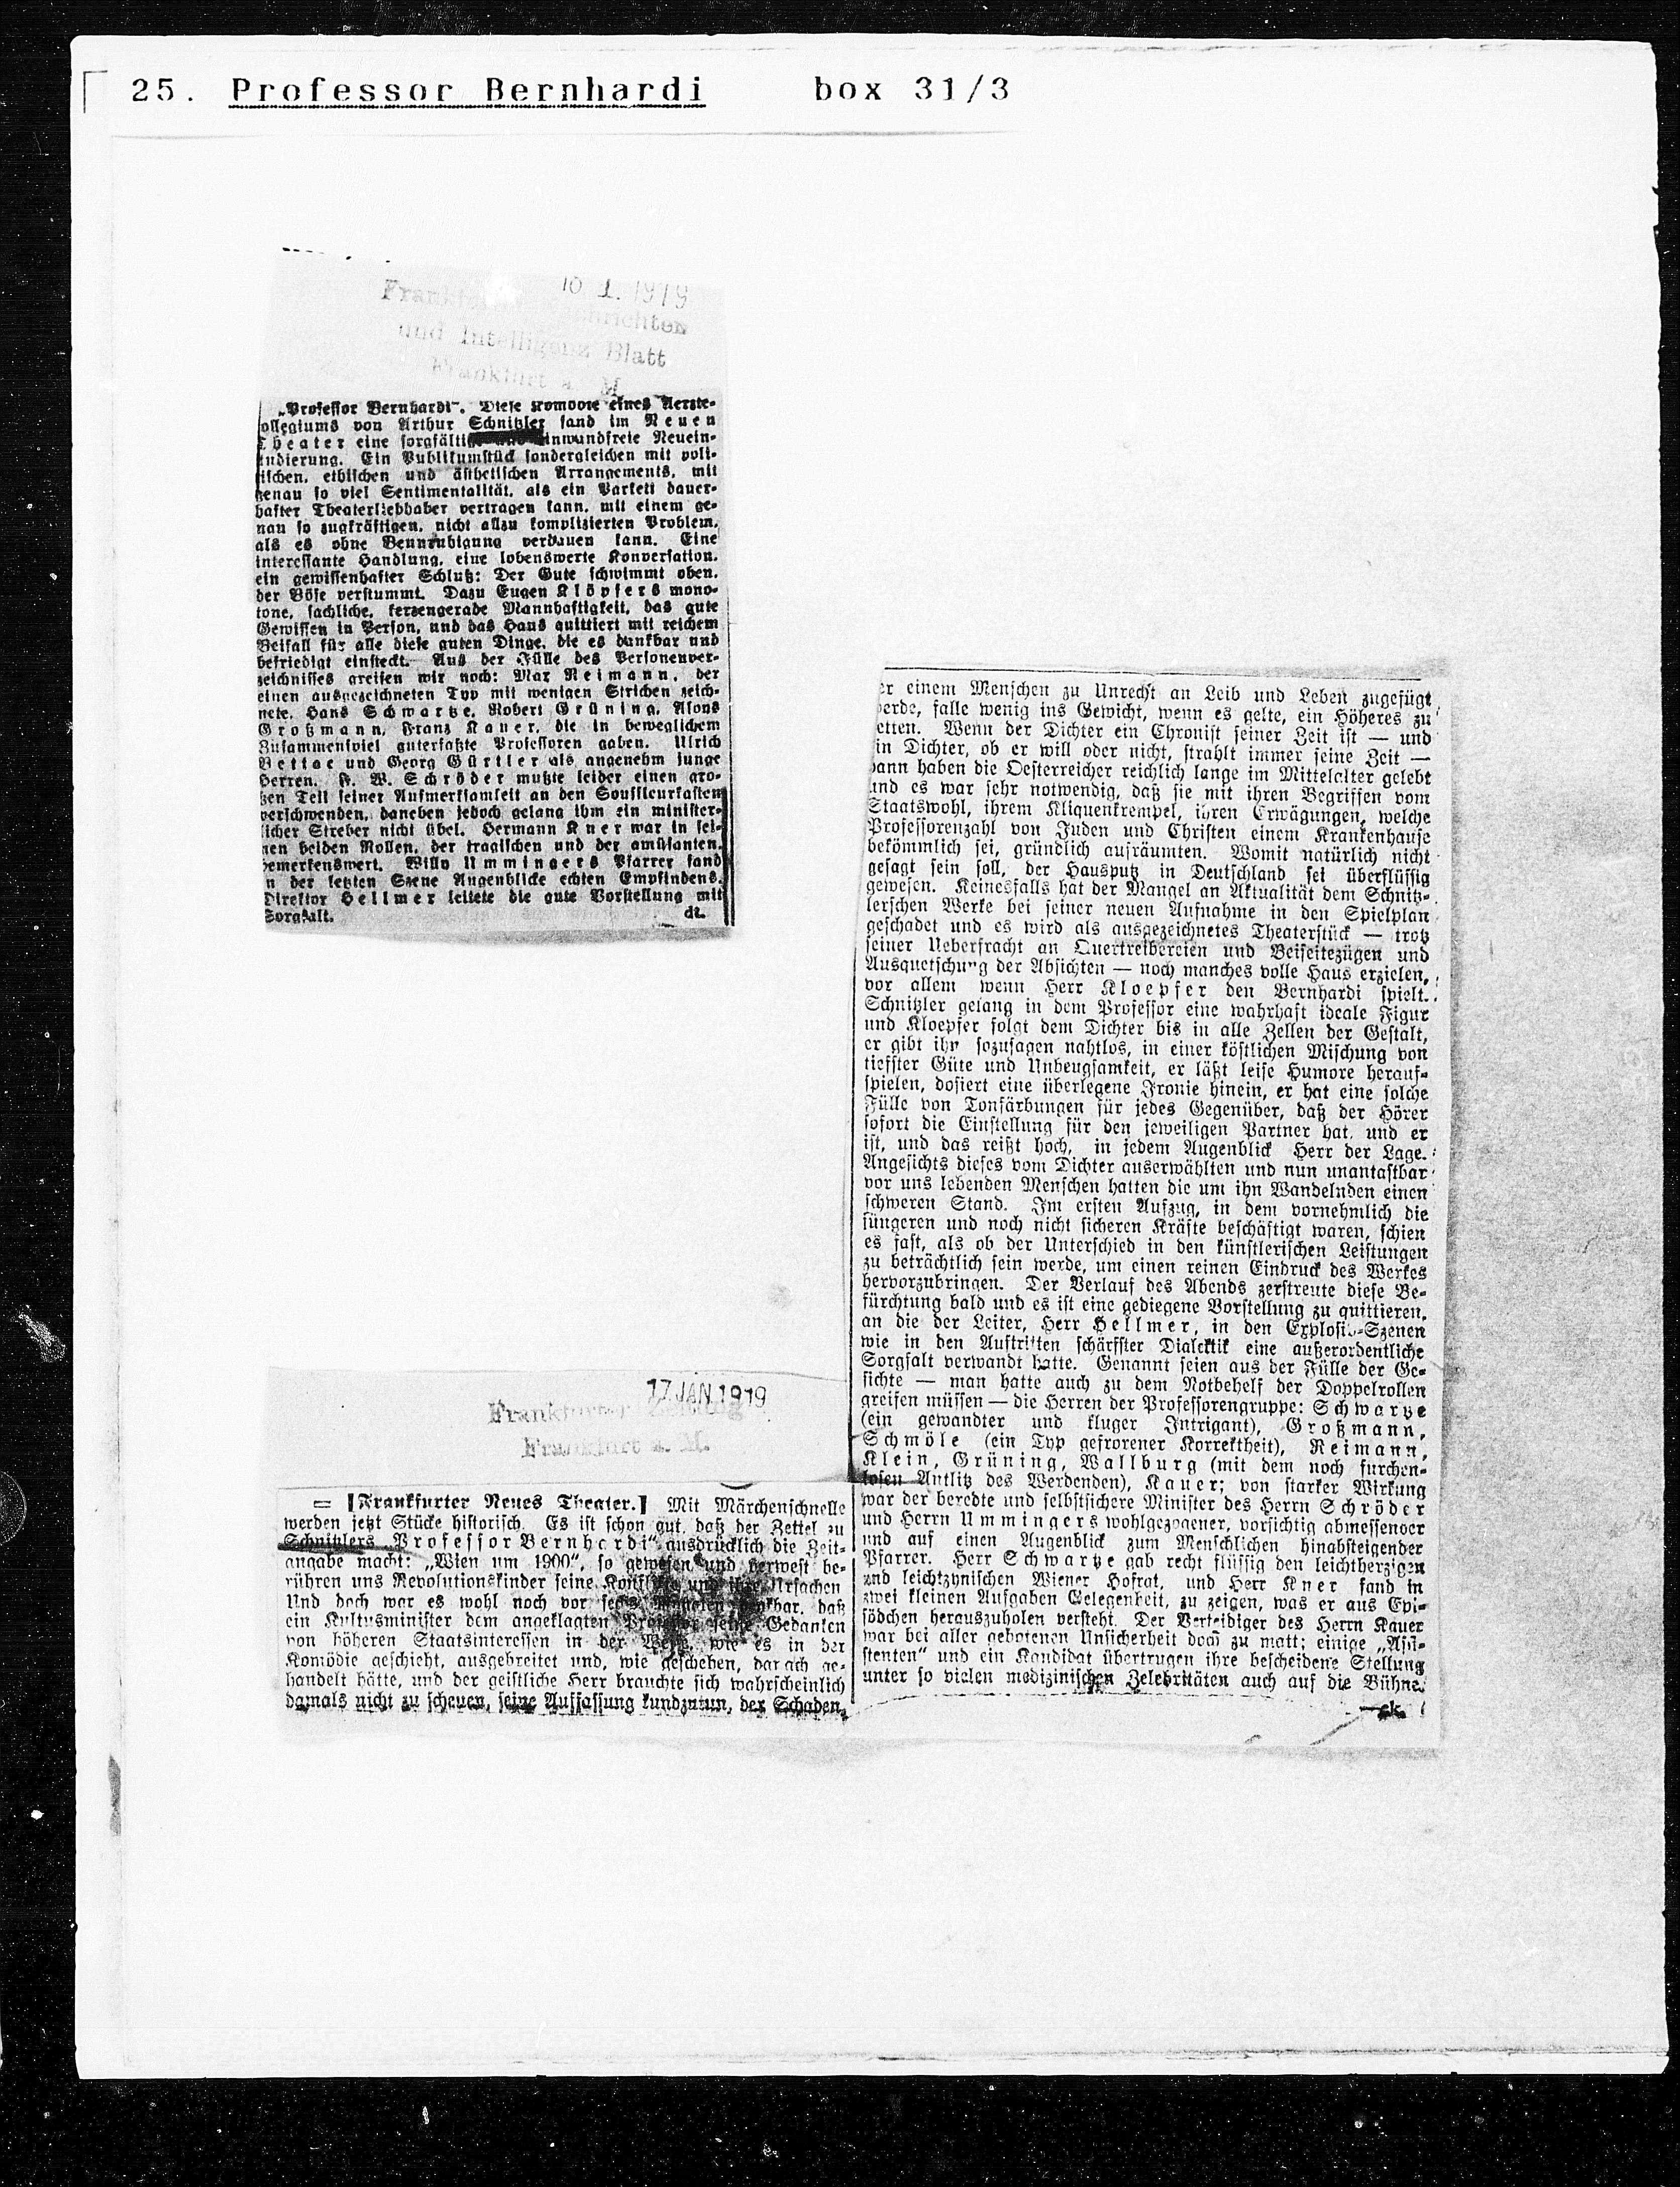 25. Professor Bernhardi box 31/3
10 1. 1919
Frankf nrichten
und Intelligenz Blatt
Frankfurt a. M.
„Professor Bernhardi". Diese Komödie eines Aerzte-
ollegiums von Arthur Schnitzler fand im Neuen
Theater eine sorgfältige und einwandfreie Neuein-
tudierung. Ein Publikumstück sondergleichen mit poli-
tischen, ethischen und ästhetischen Arrangements, mit
genau so viel Sentimentalität, als ein Parkett dauer-
hafter Theaterliebhaber vertragen kann, mit einem ge-
nau so zugkräftigen, nicht allzu komplizierten Problem,
als es ohne Beunruhigung verdauen kann. Eine
interessante Handlung, eine lobenswerte Konversation,
ein gewissenhafter Schluß: Der Gute schwimmt oben,
der Böse verstummt. Dazu Eugen Klöpfers mono-
tone, sachliche, kerzengerade Mannhaftigkeit, das gute
Gewissen in Person, und das Haus quittiert mit reichem
Beifall für alle diese guten Dinge, die es dankbar und
befriedigt einsteckt. Aus der Fülle des Personenver-
zeichnisses greifen wir noch: Max Reimann, der
einen ausgezeichneten Typ mit wenigen Strichen zeich-
nete, Hans Schwartze, Robert Grüning, Alfons
Großmann, Franz Kauer, die in beweglichem
Zusammenspiel guterfaßte Professoren gaben. Ulrich
Bettac und Georg Gürtler als angenehm junge
Herren. F. W. Schröder mußte leider einen gro-
ßen Teil seiner Aufmerksamkeit an den Souffleurkasten
verschwenden, daneben jedoch gelang ihm ein minister-
licher Streber nicht übel. Hermann Kner war in sei-
nen beiden Rollen, der tragischen und der amüsanten,
bemerkenswert. Willy Ummingers Pfarrer fand
n der letzten Szene Augenblicke echten Empfindens.
Direktor Hellmer leitete die gute Vorstellung mit
Sorgfalt. dt.
17 JAN 1919
Frankfurter Zeitung
Frankfurt a. M.
= [Frankfurter Neues Theater.] Mit Märchenschnelle
werden jetzt Stücke historisch. Es ist schon gut, daß der Zettel zu
Schnitzlers „Professor Bernhardi" ausdrücklich die Zeit-
angabe macht: „Wien um 1900", so gewesen und verwest be-
rühren uns Revolutionskinder seine Konflikte und ihre Ursachen
Und doch war es wohl noch vor sechs Monaten denkbar, daß
ein Kultusminister dem angeklagten Professor seine Gedanken
von höheren Staatsinteressen in der Weise, wie es in der
Komödie geschieht, ausgebreitet und, wie geschehen, darnach ge-
handelt hätte, und der geistliche Herr brauchte sich wahrscheinlich
damals nicht zu scheuen, seine Auffassung kundzutun, der Schaden,
er einem Menschen zu Unrecht an Leib und Leben zugefügt
erde, falle wenig ins Gewicht, wenn es gelte, ein Höheres zu
etten. Wenn der Dichter ein Chronist seiner Zeit ist — und
in Dichter, ob er will oder nicht, strahlt immer seine Zeit —
dann haben die Oesterreicher reichlich lange im Mittelalter gelebt
und es war sehr notwendig, daß sie mit ihren Begriffen vom
Staatswohl, ihrem Kliquenkrempel, ihren Erwägungen, welche
Professorenzahl von Juden und Christen einem Krankenhause
bekömmlich sei, gründlich aufräumten. Womit natürlich nicht
gesagt sein soll, der Hausputz in Deutschland sei überflüssig
gewesen. Keinesfalls hat der Mangel an Aktualität dem Schnitz-
lerschen Werke bei seiner neuen Aufnahme in den Spielplan
geschadet und es wird als ausgezeichnetes Theaterstück — trotz
seiner Ueberfracht an Quertreibereien und Beiseitezügen und
Ausquetschung der Absichten — noch manches volle Haus erzielen,
vor allem wenn Herr Kloepfer den Bernhardi spielt.
Schnitzler gelang in dem Professor eine wahrhaft ideale Figur
und Kloepfer folgt dem Dichter bis in alle Zellen der Gestalt,
er gibt ihn sozusagen nahtlos, in einer köstlichen Mischung von
tiefster Güte und Unbeugsamkeit, er läßt leise Humore herauf-
spielen, dosiert eine überlegene Ironie hinein, er hat eine solche
Fülle von Tonfärbungen für jedes Gegenüber, daß der Hörer
sofort die Einstellung für den jeweiligen Partner hat, und er
ist, und das reißt hoch, in jedem Augenblick Herr der Lage.
Angesichts dieses vom Dichter auserwählten und nun unantastbar
vor uns lebenden Menschen hatten die um ihn Wandelnden einen
schweren Stand. Im ersten Aufzug, in dem vornehmlich die
jüngeren und noch nicht sicheren Kräfte beschäftigt waren, schien
es fast, als ob der Unterschied in den künstlerischen Leistungen
zu beträchtlich sein werde, um einen reinen Eindruck des Werkes
hervorzubringen. Der Verlauf des Abends zerstreute diese Be-
fürchtung bald und es ist eine gediegene Vorstellung zu quittieren,
an die der Leiter, Herr Hellmer, in den Explosiv-Szenen
wie in den Auftritten schärfster Dialektik eine außerordentliche
Sorgfalt verwandt hatte. Genannt seien aus der Fülle der Ge-
sichte — man hatte auch zu dem Notbehelf der Doppelrollen
greifen müssen — die Herren der Professorengruppe: Schwartze
(ein gewandter und kluger Intrigant), Großmann,
Schmöle (ein Typ gefrorener Korrektheit), Reimann,
Klein, Grüning, Wallburg (mit dem noch furchen-
losen Antlitz des Werdenden), Kauer; von starker Wirkung
war der beredte und selbstsichere Minister des Herrn Schröder
und Herrn Ummingers wohlgezogener, vorsichtig abmessender
und auf einen Augenblick zum Menschlichen hinabsteigender
Pfarrer. Herr Schwartze gab recht flüssig den leichtherzigen
und leichtzynischen Wiener Hofrat, und Herr Kner fand in
zwei kleinen Aufgaben Gelegenheit, zu zeigen, was er aus Epi-
södchen herauszuholen versteht. Der Verteidiger des Herrn Kauer
war bei aller gebotenen Unsicherheit doch zu matt; einige „Assi-
stenten" und ein Kandidat übertrugen ihre bescheidene Stellung
unter so vielen medizinischen Zelebritäten auch auf die Bühne.
—ck.